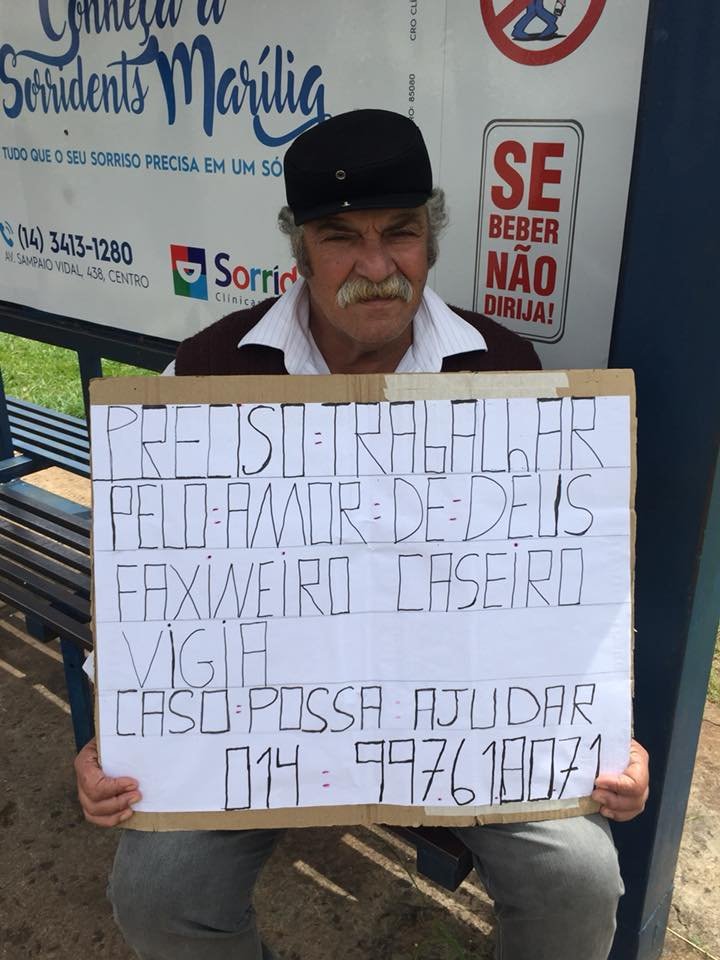 Conheça a
Sorridents Marília
TUDO QUE O SEU SORRISO PRECISA EM UM SÓ
(14) 3413-1280
AV. SAMPAIO VIDAL, 438, CENTRO
Sorrid
Clínica
CRO CL
RO: 85080
SE
BEBER
NÃO
DIRIJA!
PRECISO=TRABALHAR
PELO=AMOR=DE=DEUS
FAXINEIRO CASEIRO
VIGIA
CASO=POSSA=AJUDAR
014=997.618071